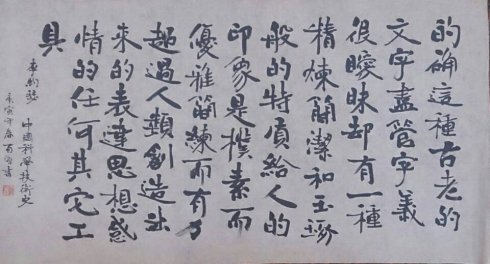 的确這種古老的
文字盡管字義
很曖昧却有一種
精煉簡潔和玉琢
般的特质給人的
印象是樸素而
優雅簡練而有力
超過人類創造出
來的表達思想感
情的任何其它工
具
李約瑟 中國科學技術史
庚寅年春